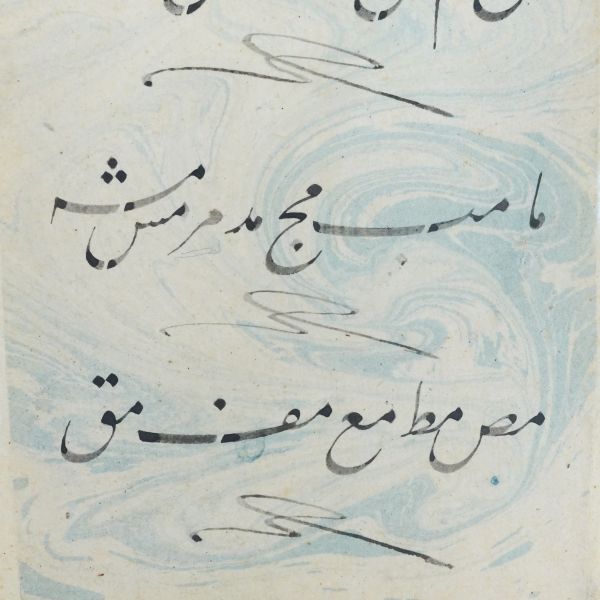 ما مب مج مد مر مس مش
مص مط مع مف مق